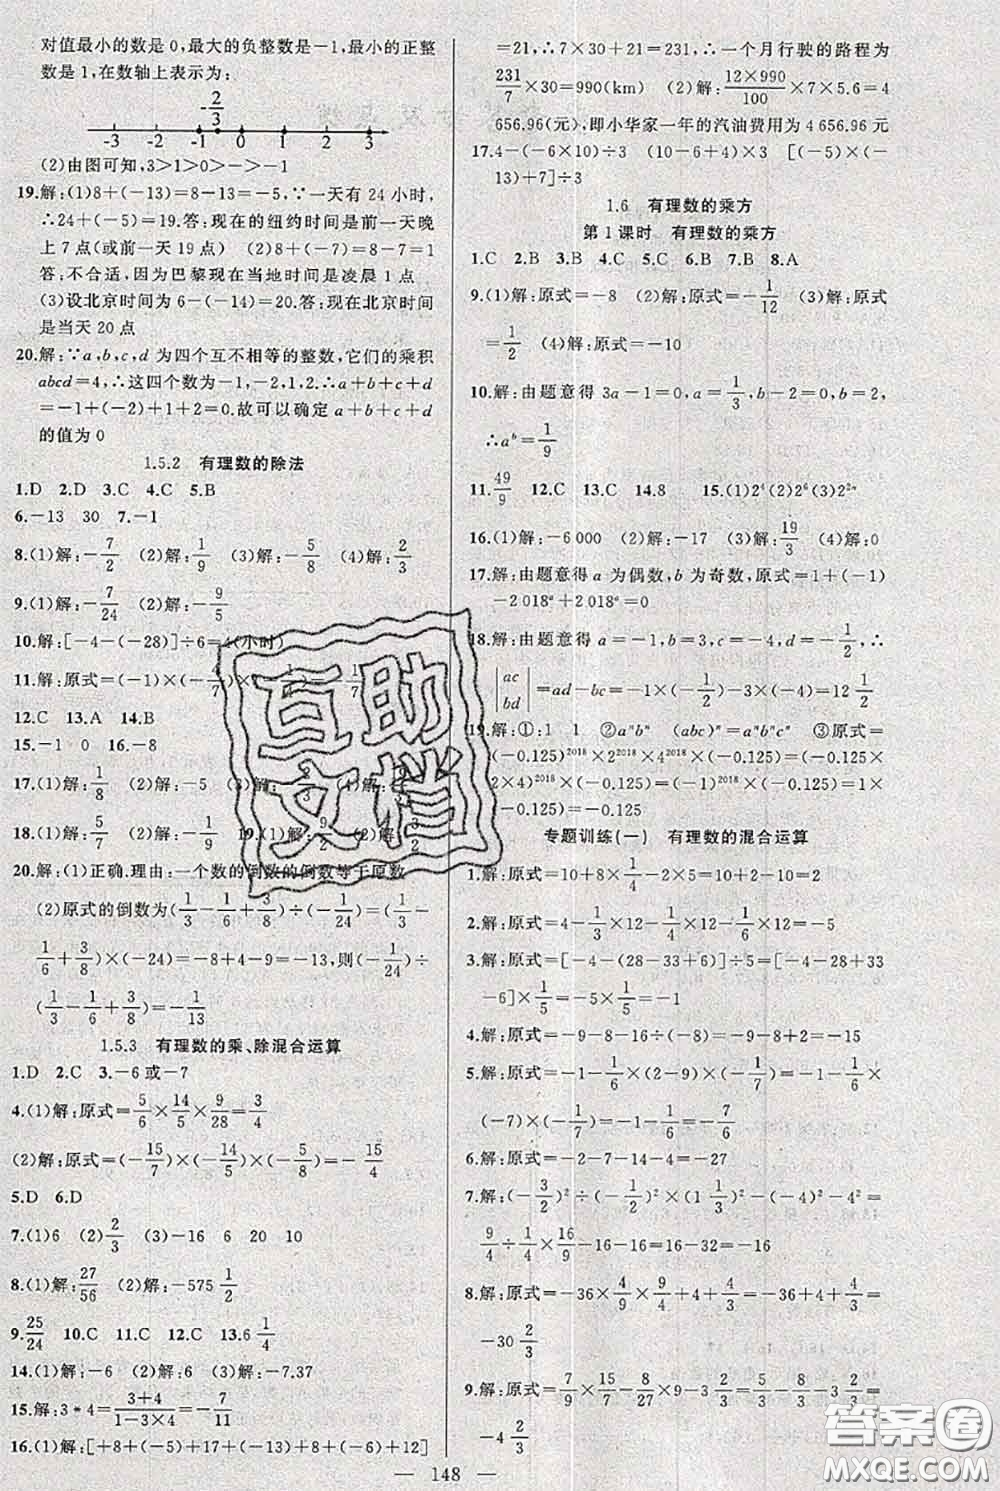 对值最小的数是0,最大的负整数是-1,最小的正整
数是1,在数轴上表示为:
-2/3
-3 -2 -1 0 1 2 3
(2)由图可知,3>1>0>->-1
19.解:(1)8+(-13)=8-13=-5,∵一天有24小时,
∴24+(-5)=19.答:现在的纽约时间是前一天晚
上7点(或前一天19点) (2)8+(-7)=8-7=1
答:不合适,因为巴黎现在当地时间是凌晨1点
(3)设北京时间为6-(-14)=20.答:现在北京时间
是当天20点
20.解:∵a,b,c,d为四个互不相等的整数,它们的乘积
abcd=4,∴这四个数为-1,-2,1,2.∴a+b+c+d
=-1+(-2)+1+2=0.故可以确定a+b+c+d
的值为0
1.5.2 有理数的除法
1.D 2.D 3.C 4.C 5.B
6.-13 30 7.-1
8.(1)解:-7/2 (2)解:1/9 (3)解:-5/8 (4)解:2/3
9.(1)解:-7/24 (2)解:-9/5
10.解:[-4-(-28)]÷6=4(小时)
11.解:原式=(-1)×(-4/7)×
12.C 13.A 14.B
15.-1 0 16.-8
17.(1)解:1/8 (2)解:
18.(1)解:5/7 (2)解:-1/9 19.(1)解:9/2 (2)解:
20.解:(1)正确.理由:一个数的倒数的倒数等于原数
(2)原式的倒数为(1/3-1/6+3/8)÷(-1/24)=(1/3-
1/6+3/8)×(-24)=-8+4-9=-13,则(-1/24)÷
(1/3-1/6+3/8)=-1/13
1.5.3 有理数的乘、除混合运算
1.D 2.C 3.-6或-7
4.(1)解:原式=5/6×14/5×9/28=3/4
(2)解:原式=(-15/7)×(-14/5)×(-5/8)=-15/4
5.D 6.D
7.(1)6 (2)2/3 (3)-16 6 20 10
8.(1)解:27/56 (2)解:-575 1/2
9.25/24 10.C 11.C 12.C 13.6 1/4
14.(1)解:-6 (2)解:6 (3)解:-7.37
15.解:3*4=(3+4)/(1-3×4)=-7/11
16.(1)解:[+8+(-5)+17+(-13)+(-6)+12]
=21,∴7×30+21=231,∴一个月行驶的路程为
231/7×30=990(km) (2)解:12×990/100×7×5.6=4
656.96(元),即小华家一年的汽油费用为4 656.96元
17.4-(-6×10)÷3 (10-6+4)×3 [(-5)×(-
13)+7]÷3
1.6 有理数的乘方
第1课时 有理数的乘方
1.C 2.B 3.B 4.C 5.C 6.B 7.B 8.A
9.(1)解:原式=-8 (2)解:原式=-1/12 (3)解:原式
=1/2 (4)解:原式=-10
10.解:由题意得 3a-1=0,a=1/3,b-2=0,b=2,
∴aᵇ=1/9
11.49/9 12.C 13.C 14.8 15.(1)2⁴(2)2⁶(3)2²ⁿ
16.(1)解:-6 000 (2)解:-17 (3)解:19/3 (4)解:0
17.解:由题意得a为偶数,b为奇数,原式=1+(-1)
-2 018ᵃ+2 018ᵃ=0
18.解:由题意得a=-1,b=3,c=-4,d=-1/2,∴
|ac bd|=ad-bc=-1×(-1/2)-3×(-4)=12 1/2
19.解:①:1 1 ②aⁿbⁿ (abc)ⁿ=aⁿbⁿcⁿ ③原式=
(-0.125)²⁰¹⁸×2²⁰¹⁸×4²⁰¹⁸×(-0.125)=(-0.125
×2×4)²⁰¹⁸×(-0.125)=(-1)²⁰¹⁸×(-0.125)=1×
(-0.125)=-0.125
专题训练(一) 有理数的混合运算
1.解:原式=10+8×1/4-2×5=10+2-10=2
2.解:原式=4-1/3×12-1/4×12-1/6×12=-5
3.解:原式=[-4-(28-33+6)]÷5=[-4-28+33
-6]×1/5=-5×1/5=-1
4.解:原式=-9-8-16÷(-8)=-9-8+2=-15
5.解:原式=-1-1/6×(2-9)×(-1/7)=-1-1/6×
(-7)×(-1/7)=-1-1/6=-7/6
6.解:原式=-2-7-14-4=-27
7.解:(-3/2)²÷1/4×(-4/3)²+(-4²)-(-4)²=
9/4÷1/4×16/9-16-16=16-16-16=-16
8.解:原式=-36×4/9×9/4+4×4/3=-36+4×4/3=
-30 2/3
9.解:原式=7/9×15/7-8/27×9-9-3 2/3=
-4 2/3
— 148 —
互助
文档
答案圈
MXQE.COM